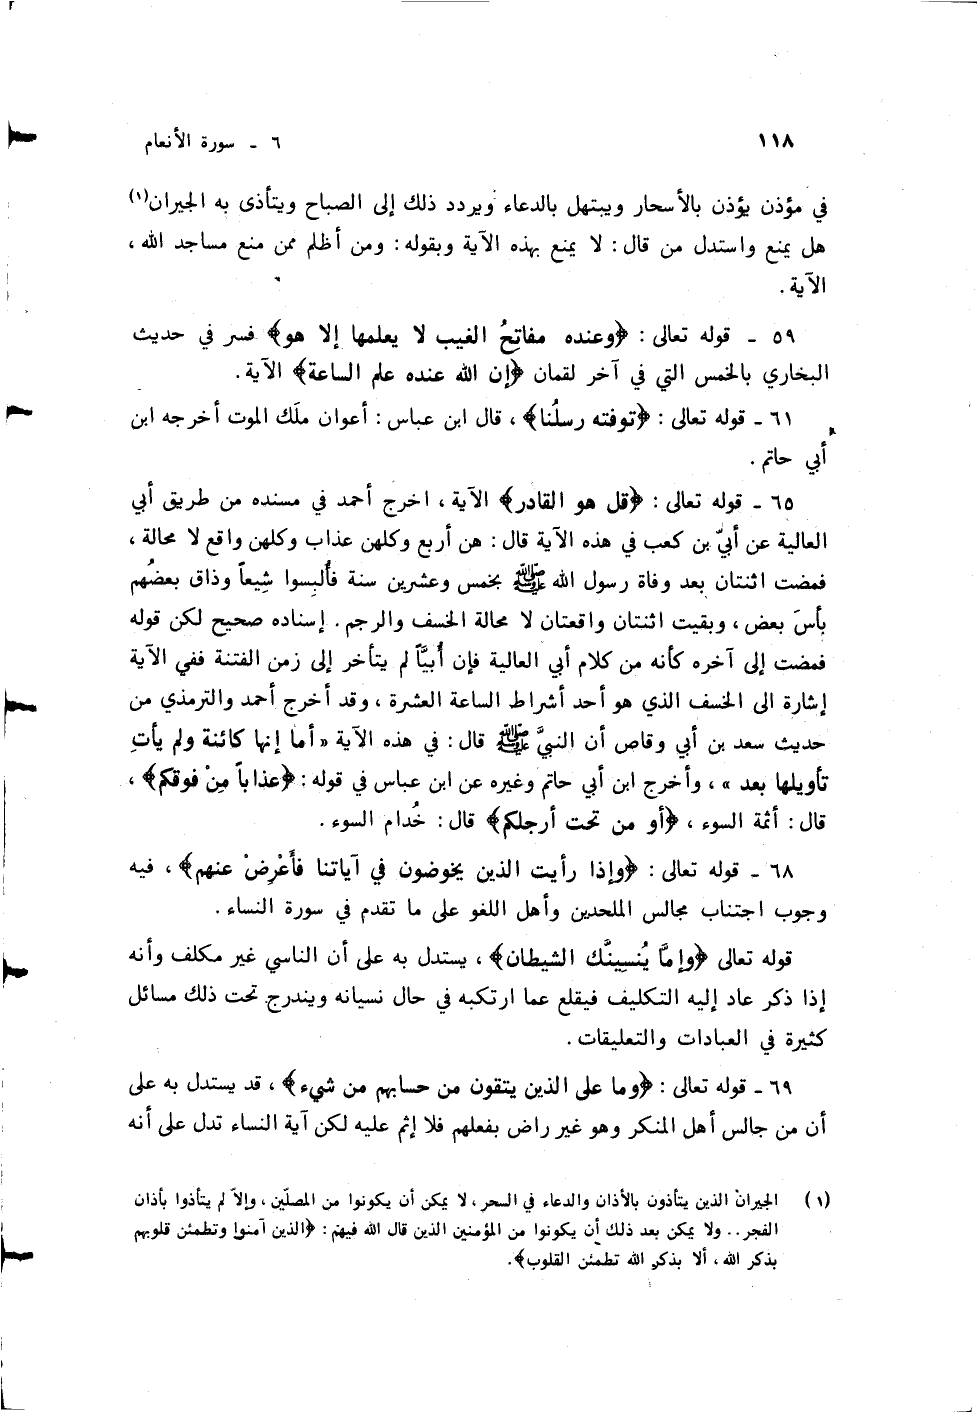 ١١٨
٦ - سورة الأنعام
في مؤذن يؤذن بالأسحار ويبتهل بالدعاء ويردد ذلك إلى الصباح ويتأذى به الجيران(١)
هل يمنع واستدل من قال : لا يمنع بهذه الآية وبقوله : ومن أظلم ممن منع مساجد الله ،
الآية .
٥٩ - قوله تعالى : ﴿وعنده مفاتحُ الغيب لا يعلمها إلا هو﴾ فسر في حديث
البخاري بالخمس التي في آخر لقمان ﴿إن الله عنده علم الساعة﴾ الآية .
٦١ - قوله تعالى : ﴿توفته رسلُنا﴾ ، قال ابن عباس : أعوان ملَك الموت أخرجه ابن
أبي حاتم .
٦٥ - قوله تعالى : ﴿قل هو القادر﴾ الآية ، اخرج أحمد في مسنده من طريق أبي
العالية عن أبيّ بن كعب في هذه الآية قال : هن أربع وكلهن عذاب وكلهن واقع لا محالة ،
فمضت اثنتان بعد وفاة رسول الله ﷺ بخمس وعشرين سنة فأُلبِسوا شِيعاً وذاق بعضُهم
بأسَ بعض ، وبقيت اثنتان واقعتان لا محالة الخسف والرجم . إسناده صحيح لكن قوله
فمضت إلى آخره كأنه من كلام أبي العالية فإن أُبيَّاً لم يتأخر إلى زمن الفتنة ففي الآية
إشارة الى الخسف الذي هو أحد أشراط الساعة العشرة ، وقد أخرج أحمد والترمذي من
حديث سعد بن أبي وقاص أن النبيَّ ﷺ قال : في هذه الآية « أما إنها كائنة ولم يأتِ
تأويلها بعد » ، وأخرج ابن أبي حاتم وغيره عن ابن عباس في قوله : ﴿عذاباً مِنْ فوقكم﴾ ،
قال : أئمة السوء ، ﴿أو من تحت أرجلكم﴾ قال : خُدام السوء .
٦٨ - قوله تعالى : ﴿وإذا رأيت الذين يخوضون في آياتنا فأَعْرِضْ عنهم﴾ ، فيه
وجوب اجتناب مجالس الملحدين وأهل اللغو على ما تقدم في سورة النساء .
قوله تعالى ﴿وإمَّا يُنسِينَّك الشيطان﴾ ، يستدل به على أن الناسي غير مكلف وأنه
إذا ذكر عاد إليه التكليف فيقلع عما ارتكبه في حال نسيانه ويندرج تحت ذلك مسائل
كثيرة في العبادات والتعليقات .
٦٩ - قوله تعالى : ﴿وما على الذين يتقون من حسابهم من شيء﴾ ، قد يستدل به على
أن من جالس أهل المنكر وهو غير راض بفعلهم فلا إثم عليه لكن آية النساء تدل على أنه
(١) الجيرانُ الذين يتأذون بالأذان والدعاء في السحر ، لا يمكن أن يكونوا من المصلّين ، وإلاّ لم يتأذوا بأذان
الفجر .. ولا يمكن بعد ذلك أن يكونوا من المؤمنين الذين قال الله فيهم : ﴿الذين آمنوا وتطمئن قلوبهم
بذكر الله ، ألا بذكر الله تطمئن القلوب﴾ .